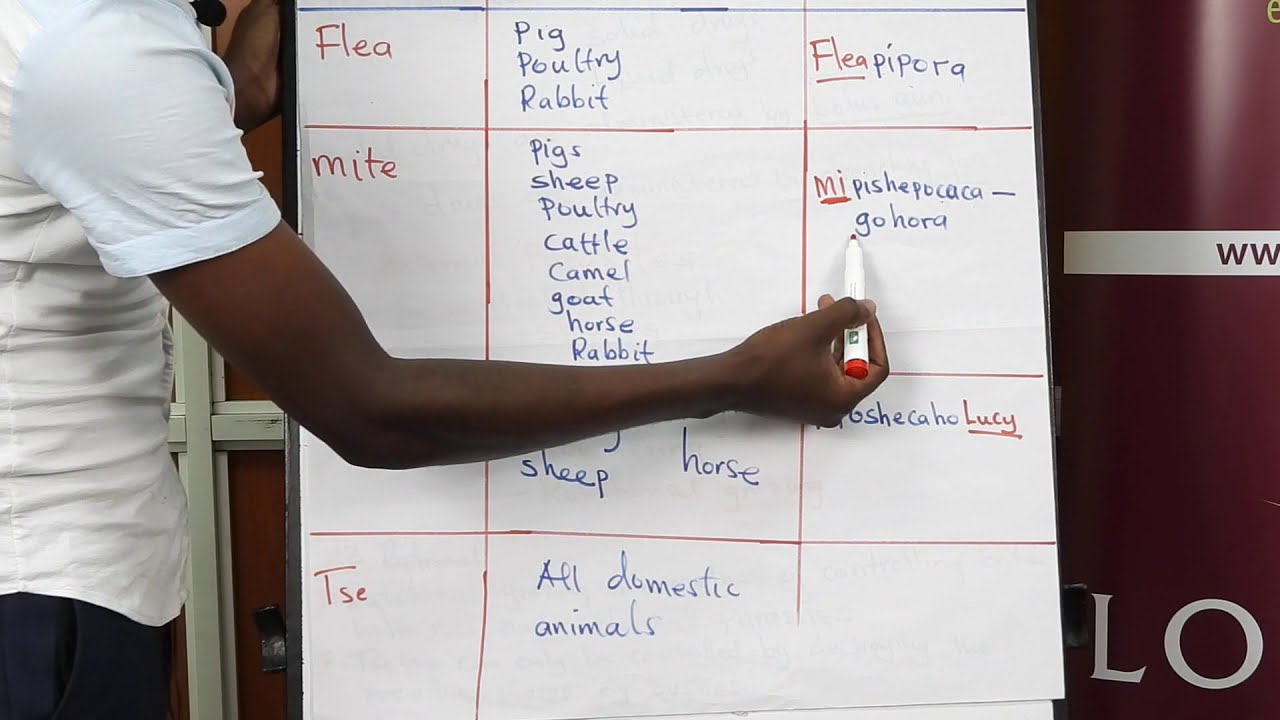 Flea
Pig
Poultry
Rabbit
Fleapipora
mite
Pigs
sheep
Poultry
Cattle
Camel
goat
horse
Rabbit
mipishepocaca –
gohora
oshecahoLucy
sheep
horse
Tse
All domestic
animals
ww
LO